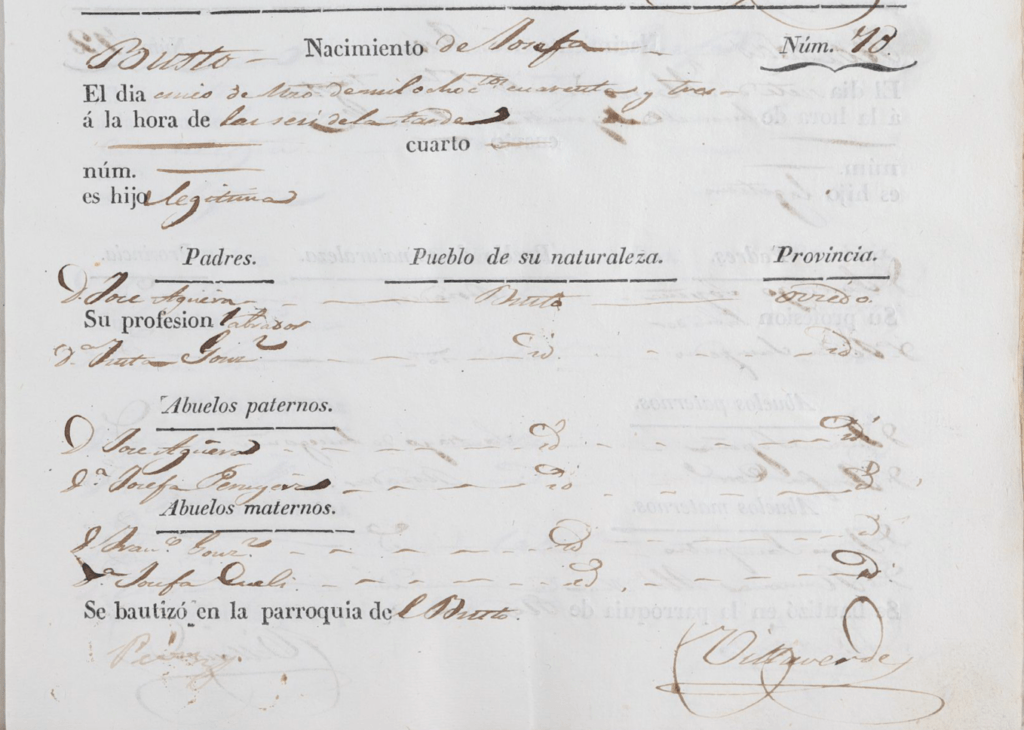 Bustto - Nacimiento de Josefa Núm. 78.
El dia oncio de Mzo de mil ocho c.tos cuarenta y tres
á la hora de las seis de la tarde
cuarto
núm.
es hijo legitima
Padres. Pueblo de su naturaleza. Provincia.
D. Jose Aguera Bustto oviedo.
Su profesion labrador
D.ª Gonz.z id. id.
Abuelos paternos.
D. Jose Agüera id id
D.ª Josefa id id
Abuelos maternos.
D. Fran.co Gonz.z id id
D.ª Josefa id id
Se bautizó en la parroquia de l Bustto.
Villaverde